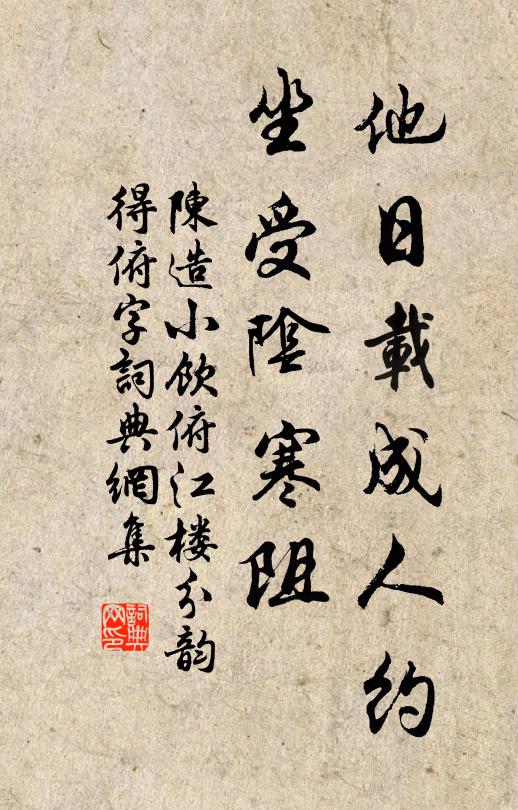 他日載成人約
坐受陰寒阻
陳造小飲俯江楼分韵
得俯字詞典網集
詞典
网印